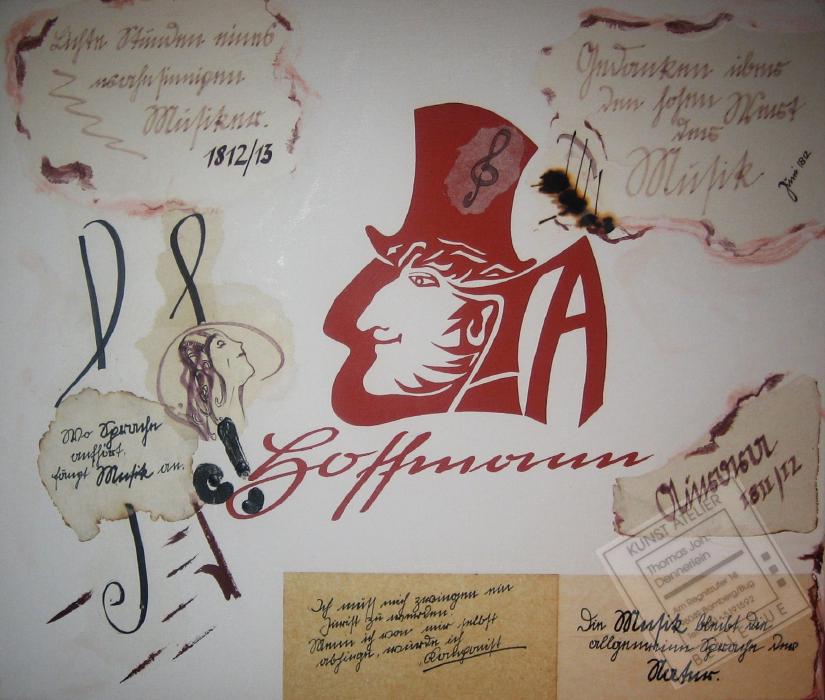 Lichte Stunden eines
wahnsinnigen
Musiker.
1812/13
Gedanken über
den hohen Wert
der
Musik
Juni 1812
A
Wo Sprache
aufhört,
fängt Musik an.
Hoffmann
1811/12
Ich muß mich zwingen ein
Jurist zu werden.
Wenn ich von mir selbst
abhinge, würde ich
Komponist
Die Musik bleibt die
allgemeine Sprache der
Natur.
KUNST ATELIER
Thomas Joh.
Dennerlein
Am Regnitzufer 18